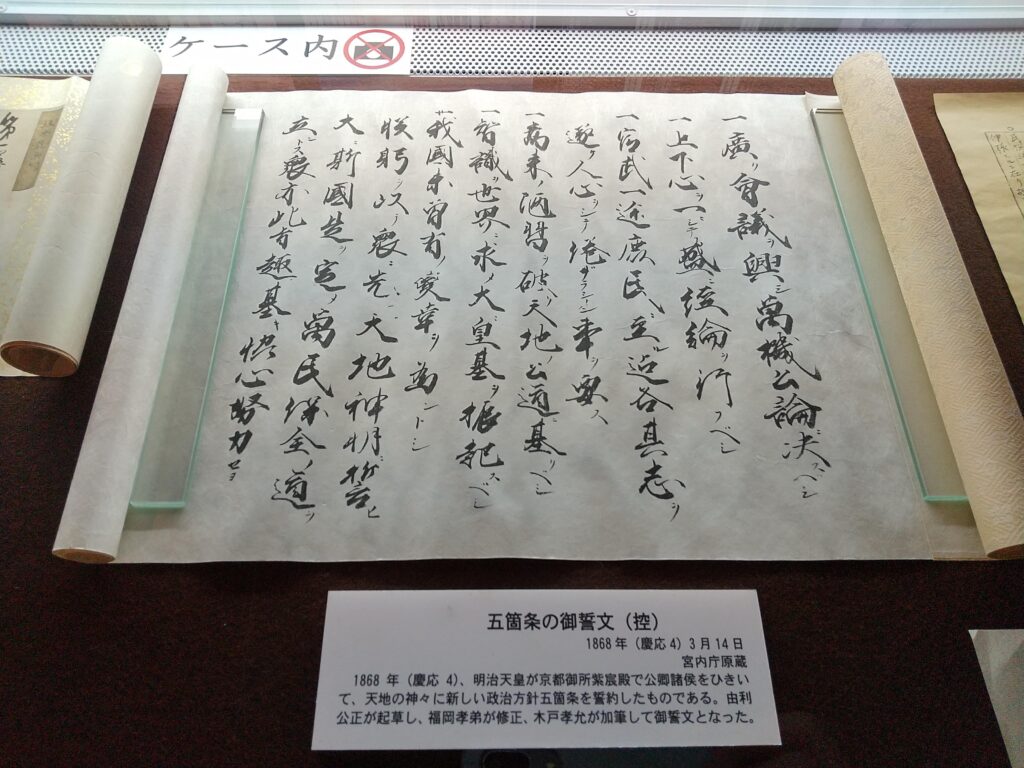 ケース内
一廣ク會議ヲ興シ萬機公論ニ決スベシ
一上下心ヲ一ニシテ盛ニ經綸ヲ行フベシ
一官武一途庶民ニ至ル迄各其志ヲ
遂ケ人心ヲシテ倦マザラシメン事ヲ要ス
一舊來ノ陋習ヲ破リ天地ノ公道ニ基クベシ
一智識ヲ世界ニ求メ大ニ皇基ヲ振起スベシ
我國未曾有ノ變革ヲ為ントシ
朕躬ヲ以テ衆ニ先シ天地神明ニ誓ヒ
大ニ斯國是ヲ定メ萬民保全ノ道ヲ
立ントス衆亦此旨趣ニ基キ協心努力セヨ
五箇条の御誓文（控）
1868年（慶応4）3月14日
宮内庁原蔵
1868年（慶応4）、明治天皇が京都御所紫宸殿で公卿諸侯をひきい
て、天地の神々に新しい政治方針五箇条を誓約したものである。由利
公正が起草し、福岡孝弟が修正、木戸孝允が加筆して御誓文となった。